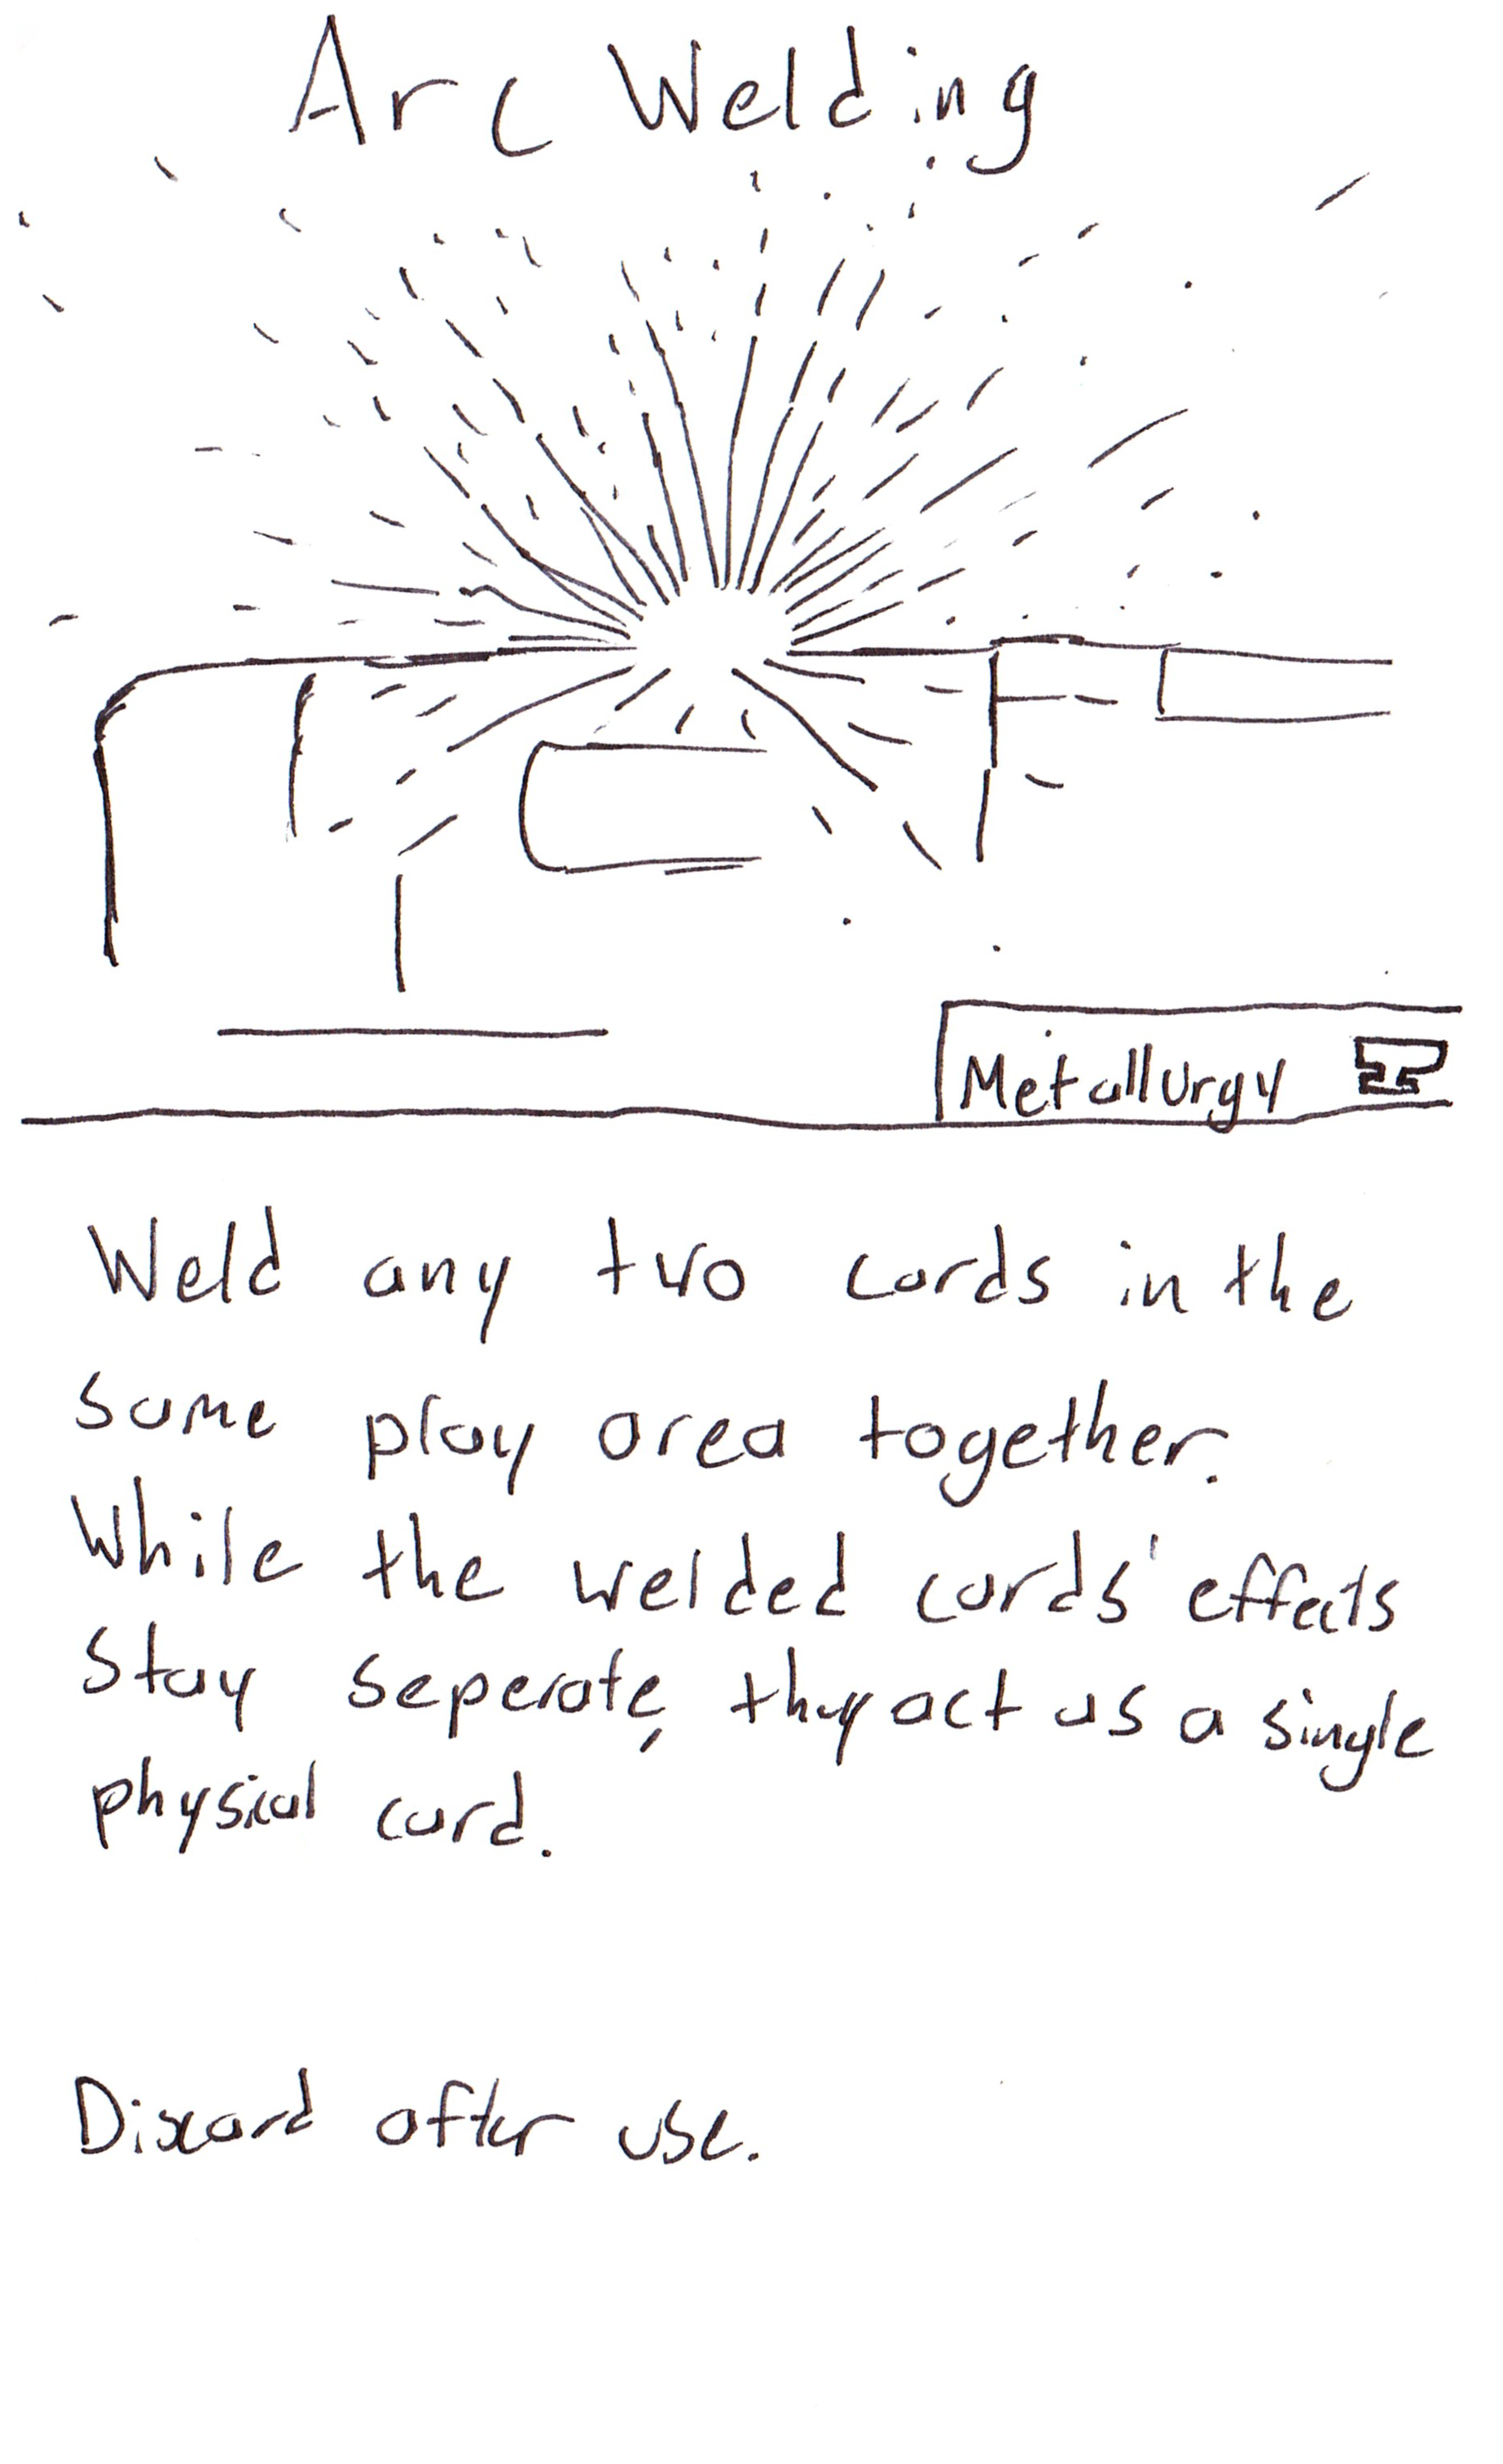 Arc Welding
Metallurgy
Weld any two cards in the
same play area together.
While the welded cards' effects
stay seperate, they act as a single
physical card.
Discard after use.